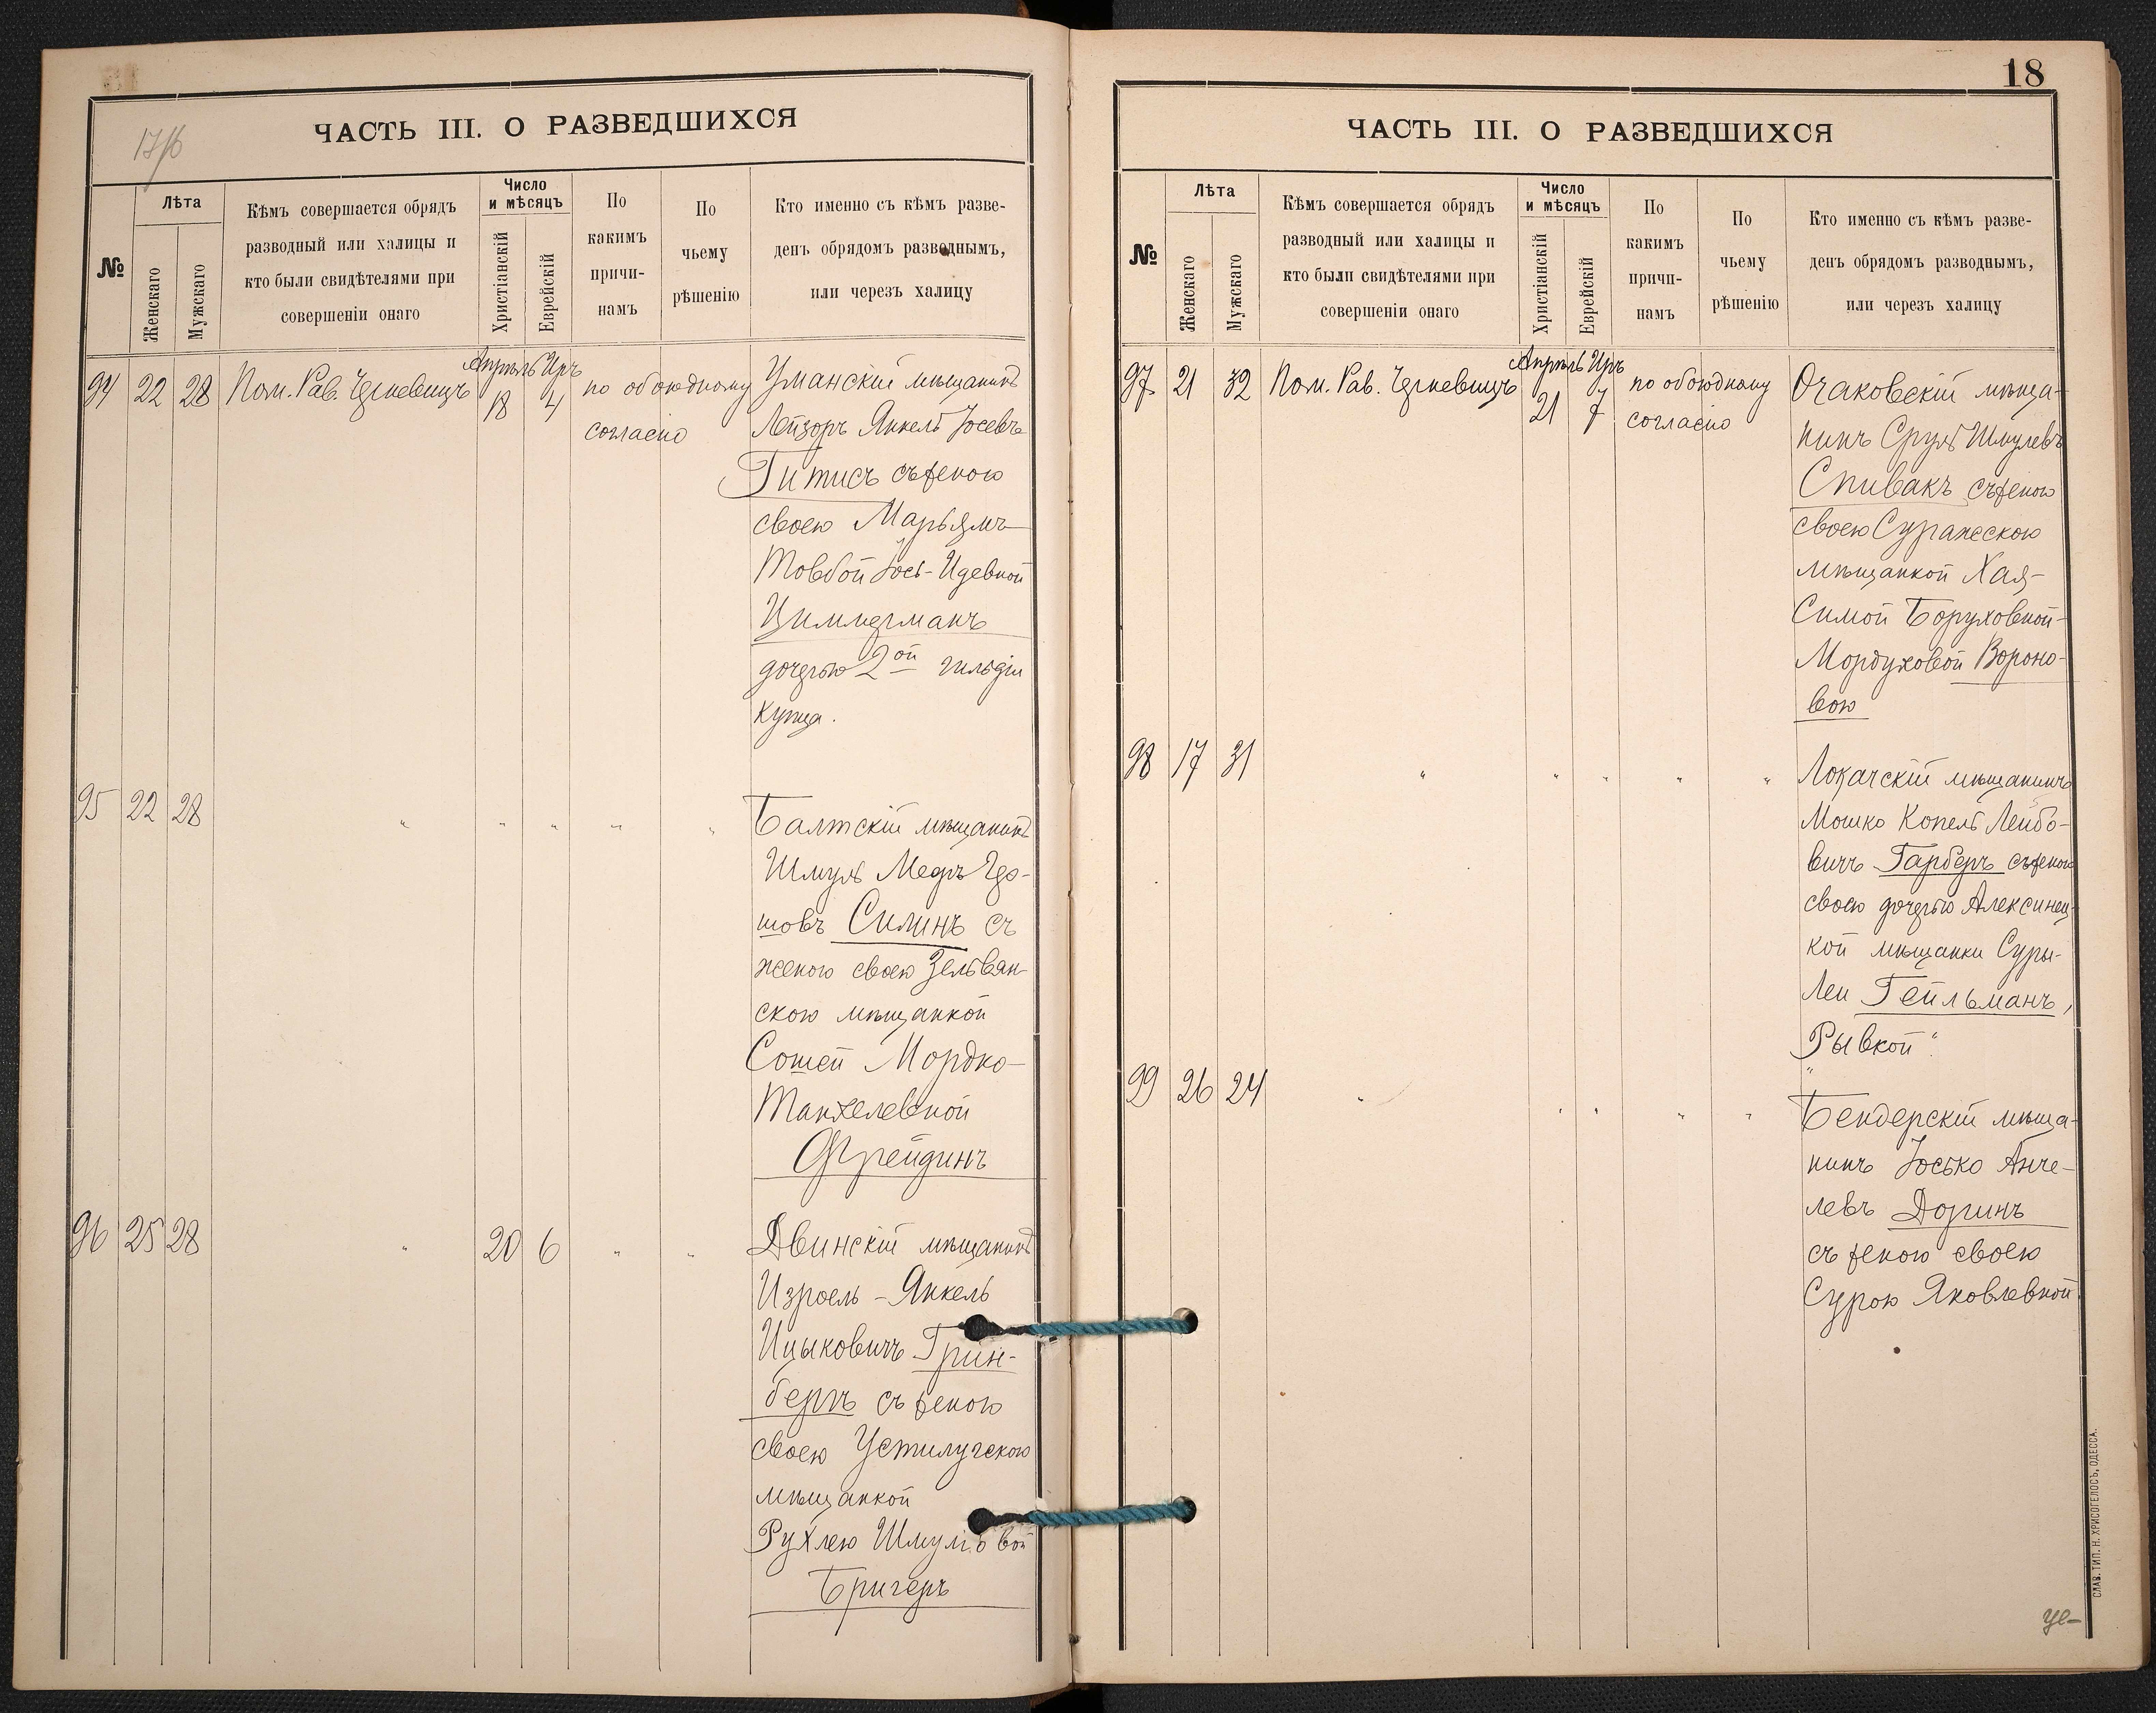 ЧАСТЬ III. О РАЗВЕДШИХСЯ
№
Лѣта
Женскаго
Мужскаго
Кѣмъ совершается обрядъ
разводный или халицы и
кто были свидѣтелями при
совершеніи онаго
Число
и мѣсяцъ
Христіанскій
Еврейскій
По
какимъ
причи-
намъ
По
чьему
рѣшенію
Кто именно съ кѣмъ разве-
денъ обрядомъ разводнымъ,
или черезъ халицу
Апрѣль Иръ
94 22 28 Пом. Рав. 18 4 по обоюдному Уманскій мѣщанинъ
согласію Лейзоръ Янкель Іосевъ
Гитисъ съ женою
своею Марьямъ
Товбой Іось-Идевной
Циммерманъ
дочерью 2ой гильдіи
купца.
95 22 28 " " " " " Балтскій мѣщанинъ
Шмуль Мееръ Гер-
шовъ Силинъ съ
женою своею Зельвян-
скою мѣщанкой
Сошей Мордко-
Танхелевной
Фрейдинъ
96 25 28 " 20 6 " " Двинскій мѣщанинъ
Изроель-Янкель
Ицыковичъ Грин-
бергъ съ женою
своею Устилугскою
мѣщанкой
Рухлею Шмуліовой
Бригеръ
18
ЧАСТЬ III. О РАЗВЕДШИХСЯ
№
Лѣта
Женскаго
Мужскаго
Кѣмъ совершается обрядъ
разводный или халицы и
кто были свидѣтелями при
совершеніи онаго
Число
и мѣсяцъ
Христіанскій
Еврейскій
По
какимъ
причи-
намъ
По
чьему
рѣшенію
Кто именно съ кѣмъ разве-
денъ обрядомъ разводнымъ,
или черезъ халицу
Апрѣль Иръ
97 21 32 Пом. Рав. 21 7 по обоюдному Очаковскій мѣща-
согласію нинъ Сруль Шмулевъ
Спивакъ съ женою
своею Суражскою
мѣщанкой Хая-
Симой Боруховной-
Мордуховой Вороно-
вою
98 17 31 " " " " " Локачскій мѣщанинъ
Мошко Копель Лейбо-
вичъ Гарберъ съ женою
своею дочерью Алексинец-
кой мѣщанки Суры-
Леи Гейльманъ,
"Рывкой".
99 26 24 " " " " " Бендерскій мѣща-
нинъ Іосько Анче-
левъ Доринъ
съ женою своею
Сурою Яковлевной
СЛАВ. ТИП. Н. ХРИСОГЕЛОСЪ, ОДЕССА.